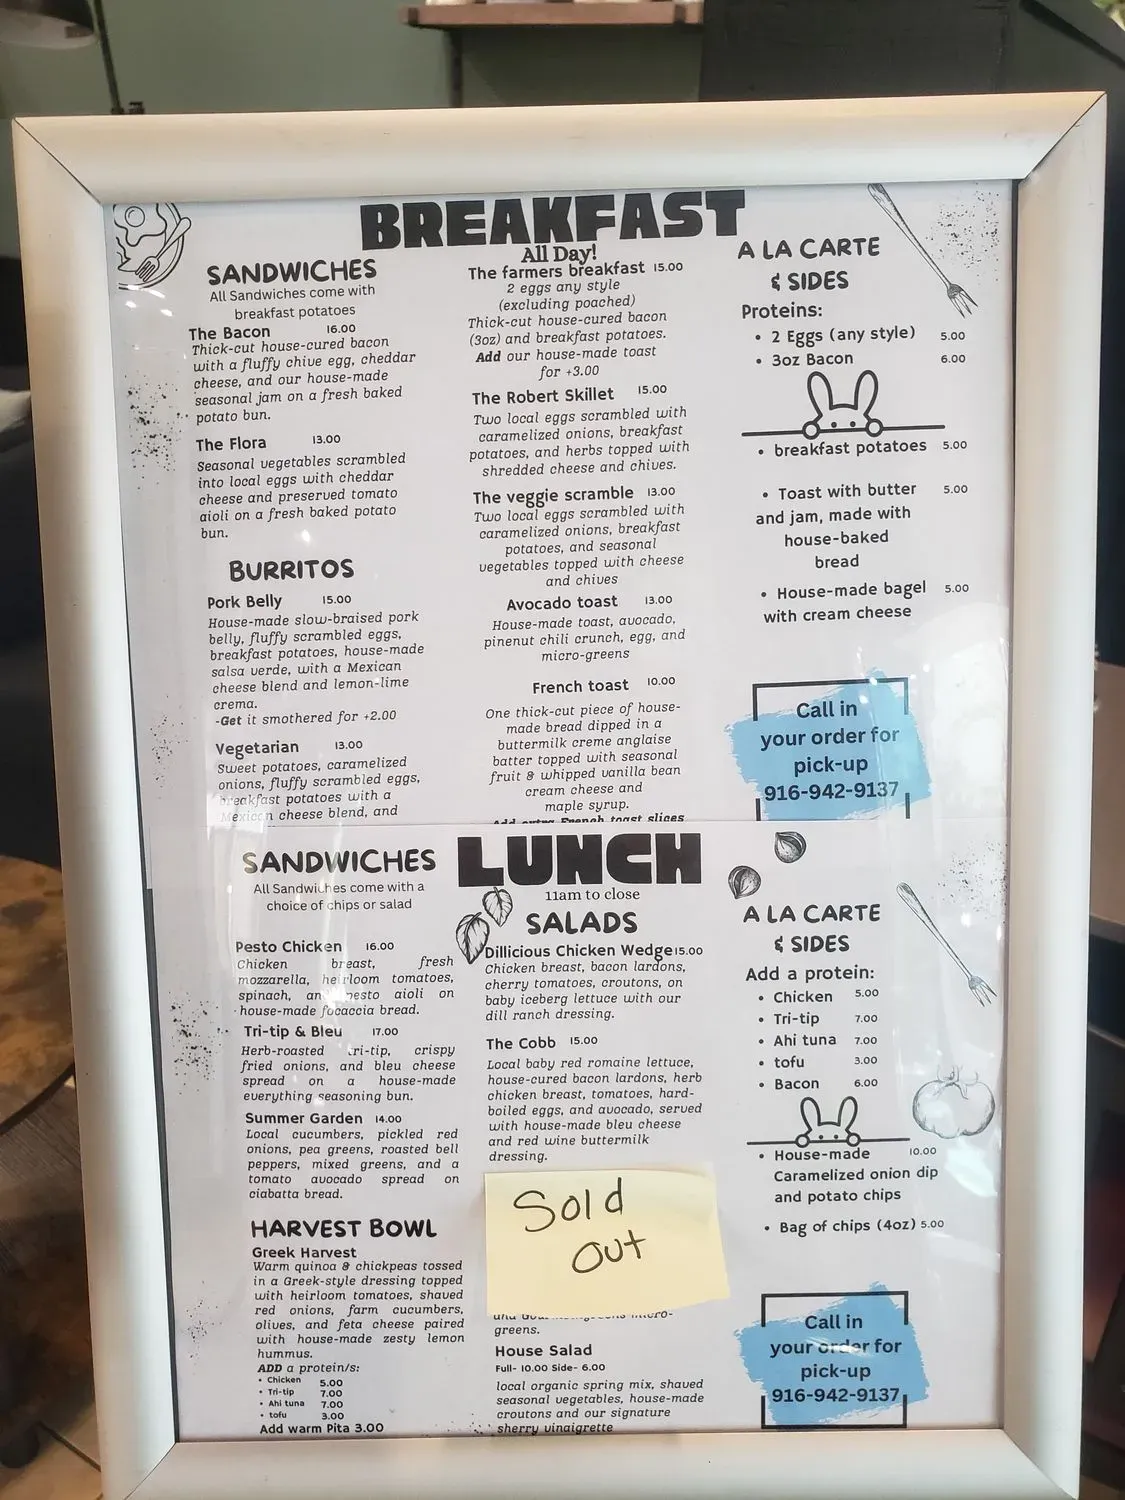 BREAKFAST
All Day!
SANDWICHES
All Sandwiches come with
breakfast potatoes
The Bacon 16.00
Thick-cut house-cured bacon
with a fluffy chive egg, cheddar
cheese, and our house-made
seasonal jam on a fresh baked
potato bun.
The Flora 13.00
Seasonal vegetables scrambled
into local eggs with cheddar
cheese and preserved tomato
aioli on a fresh baked potato
bun.
BURRITOS
Pork Belly 15.00
House-made slow-braised pork
belly, fluffy scrambled eggs,
breakfast potatoes, house-made
salsa verde, with a Mexican
cheese blend and lemon-lime
crema.
-Get it smothered for +2.00
Vegetarian 13.00
Sweet potatoes, caramelized
onions, fluffy scrambled eggs,
breakfast potatoes with a
Mexican cheese blend, and
The farmers breakfast 15.00
2 eggs any style
(excluding poached)
Thick-cut house-cured bacon
(3oz) and breakfast potatoes.
Add our house-made toast
for +3.00
The Robert Skillet 15.00
Two local eggs scrambled with
caramelized onions, breakfast
potatoes, and herbs topped with
shredded cheese and chives.
The veggie scramble 13.00
Two local eggs scrambled with
caramelized onions, breakfast
potatoes, and seasonal
vegetables topped with cheese
and chives
Avocado toast 13.00
House-made toast, avocado,
pinenut chili crunch, egg, and
micro-greens
French toast 10.00
One thick-cut piece of house-
made bread dipped in a
buttermilk creme anglaise
batter topped with seasonal
fruit & whipped vanilla bean
cream cheese and
maple syrup.
Add extra French toast slices
A LA CARTE
& SIDES
Proteins:
• 2 Eggs (any style) 5.00
• 3oz Bacon 6.00
• breakfast potatoes 5.00
• Toast with butter 5.00
and jam, made with
house-baked
bread
• House-made bagel 5.00
with cream cheese
Call in
your order for
pick-up
916-942-9137
LUNCH
11am to close
SANDWICHES
All Sandwiches come with a
choice of chips or salad
Pesto Chicken 16.00
Chicken breast, fresh
mozzarella, heirloom tomatoes,
spinach, and pesto aioli on
house-made focaccia bread.
Tri-tip & Bleu 17.00
Herb-roasted tri-tip, crispy
fried onions, and bleu cheese
spread on a house-made
everything seasoning bun.
Summer Garden 14.00
Local cucumbers, pickled red
onions, pea greens, roasted bell
peppers, mixed greens, and a
tomato avocado spread on
ciabatta bread.
HARVEST BOWL
Greek Harvest
Warm quinoa & chickpeas tossed
in a Greek-style dressing topped
with heirloom tomatoes, shaved
red onions, farm cucumbers,
olives, and feta cheese paired
with house-made zesty lemon
hummus.
ADD a protein/s:
• Chicken 5.00
• Tri-tip 7.00
• Ahi tuna 7.00
• tofu 3.00
Add warm Pita 3.00
SALADS
Dillicious Chicken Wedge 15.00
Chicken breast, bacon lardons,
cherry tomatoes, croutons, on
baby iceberg lettuce with our
dill ranch dressing.
The Cobb 15.00
Local baby red romaine lettuce,
house-cured bacon lardons, herb
chicken breast, tomatoes, hard-
boiled eggs, and avocado, served
with house-made bleu cheese
and red wine buttermilk
dressing.
Sold
Out
greens.
House Salad
Full- 10.00 Side- 6.00
local organic spring mix, shaved
seasonal vegetables, house-made
croutons and our signature
sherry vinaigrette
A LA CARTE
& SIDES
Add a protein:
• Chicken 5.00
• Tri-tip 7.00
• Ahi tuna 7.00
• tofu 3.00
• Bacon 6.00
• House-made 10.00
Caramelized onion dip
and potato chips
• Bag of chips (4oz) 5.00
Call in
your order for
pick-up
916-942-9137